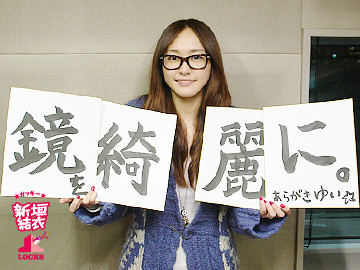 鏡を綺麗に。
あらがきゆい
ガッキー
新垣
結衣
LOCKS